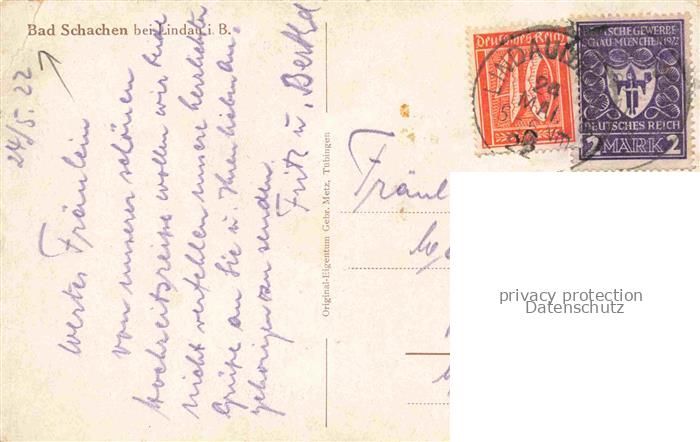 Bad Schachen bei Lindau i. B.
24/5. 22
Wertes Fräulein
Von unserer schönen
Hochzeitsreise wollen wir beide
nicht verfehlen unsere herzlichsten
Grüße an Sie u. Ihren lieben An-
gehörigen zu senden.
Fritz u. Berta
Original-Eigentum Gebr. Metz, Tübingen
Deutsches Reich
DEUTSCHE GEWERBE
SCHAU MÜNCHEN 1922
DEUTSCHES REICH
2 MARK 2
LINDAU
24
MAI
22
Fräul
privacy protection
Datenschutz